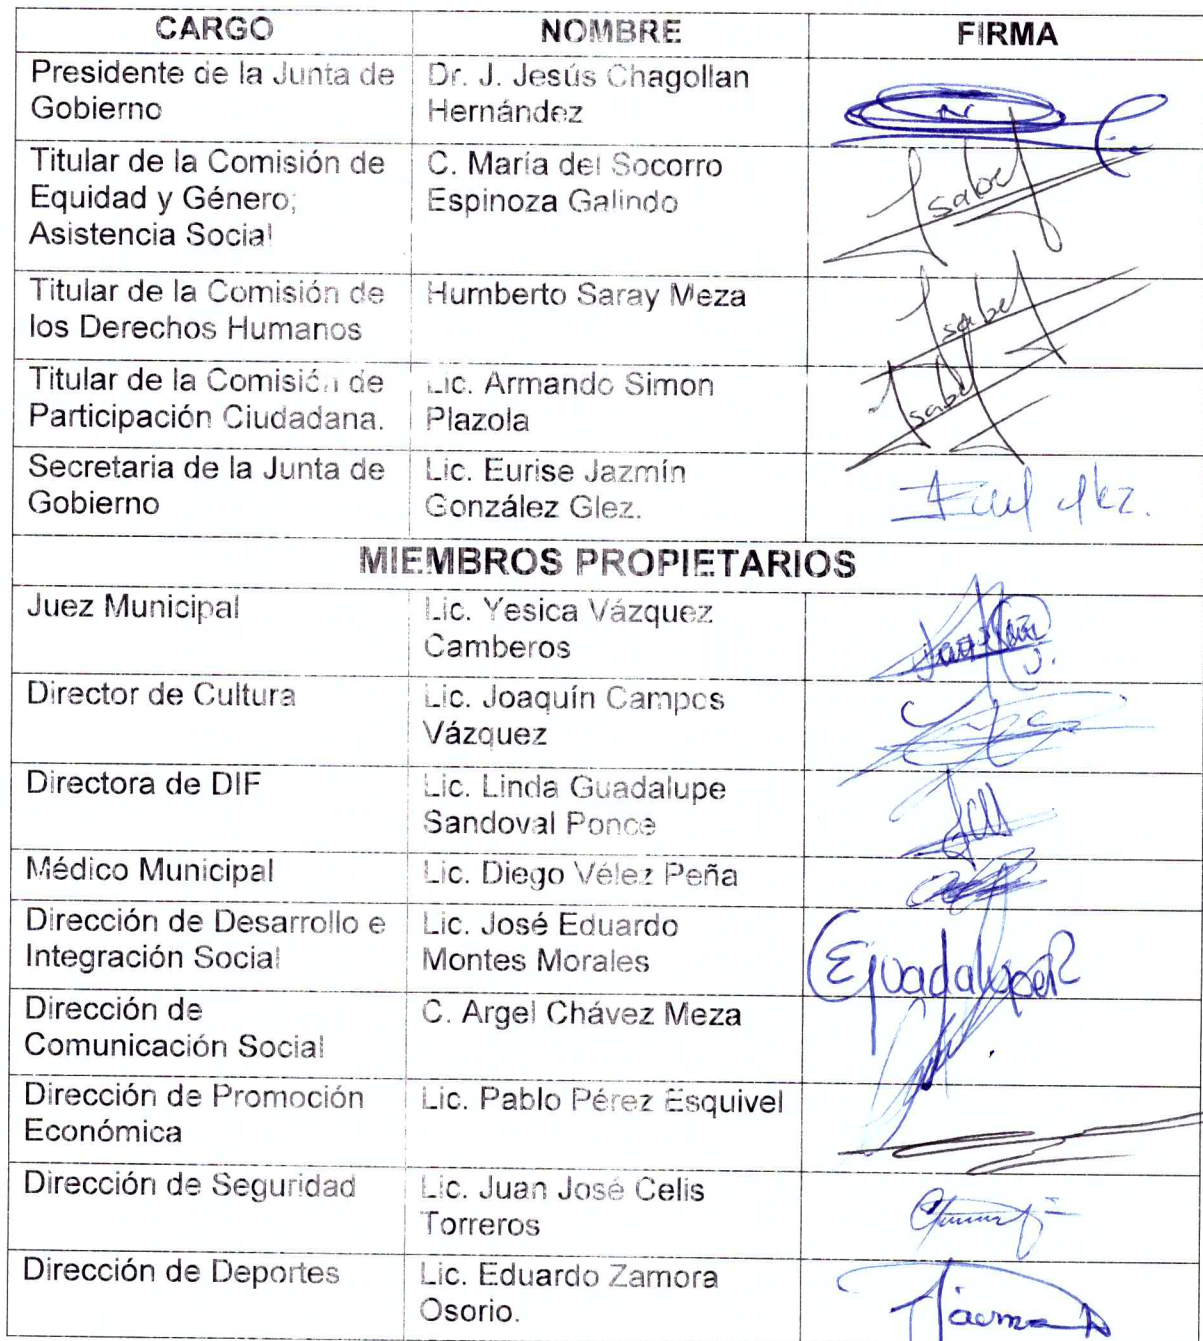 CARGO NOMBRE FIRMA
Presidente de la Junta de
Gobierno
Dr. J. Jesús Chagollan
Hernández
Titular de la Comisión de
Equidad y Género;
Asistencia Social
C. María del Socorro
Espinoza Galindo
Isabel
Titular de la Comisión de
los Derechos Humanos
Humberto Saray Meza
Isabel
Titular de la Comisión de
Participación Ciudadana.
Lic. Armando Simon
Plazola
Isabel
Secretaria de la Junta de
Gobierno
Lic. Eurise Jazmín
González Glez.
MIEMBROS PROPIETARIOS
Juez Municipal
Lic. Yesica Vázquez
Camberos
Director de Cultura
Lic. Joaquín Campos
Vázquez
Directora de DIF
Lic. Linda Guadalupe
Sandoval Ponce
Médico Municipal
Lic. Diego Vélez Peña
Dirección de Desarrollo e
Integración Social
Lic. José Eduardo
Montes Morales
Dirección de
Comunicación Social
C. Argel Chávez Meza
Dirección de Promoción
Económica
Lic. Pablo Pérez Esquivel
Dirección de Seguridad
Lic. Juan José Celis
Torreros
Dirección de Deportes
Lic. Eduardo Zamora
Osorio.